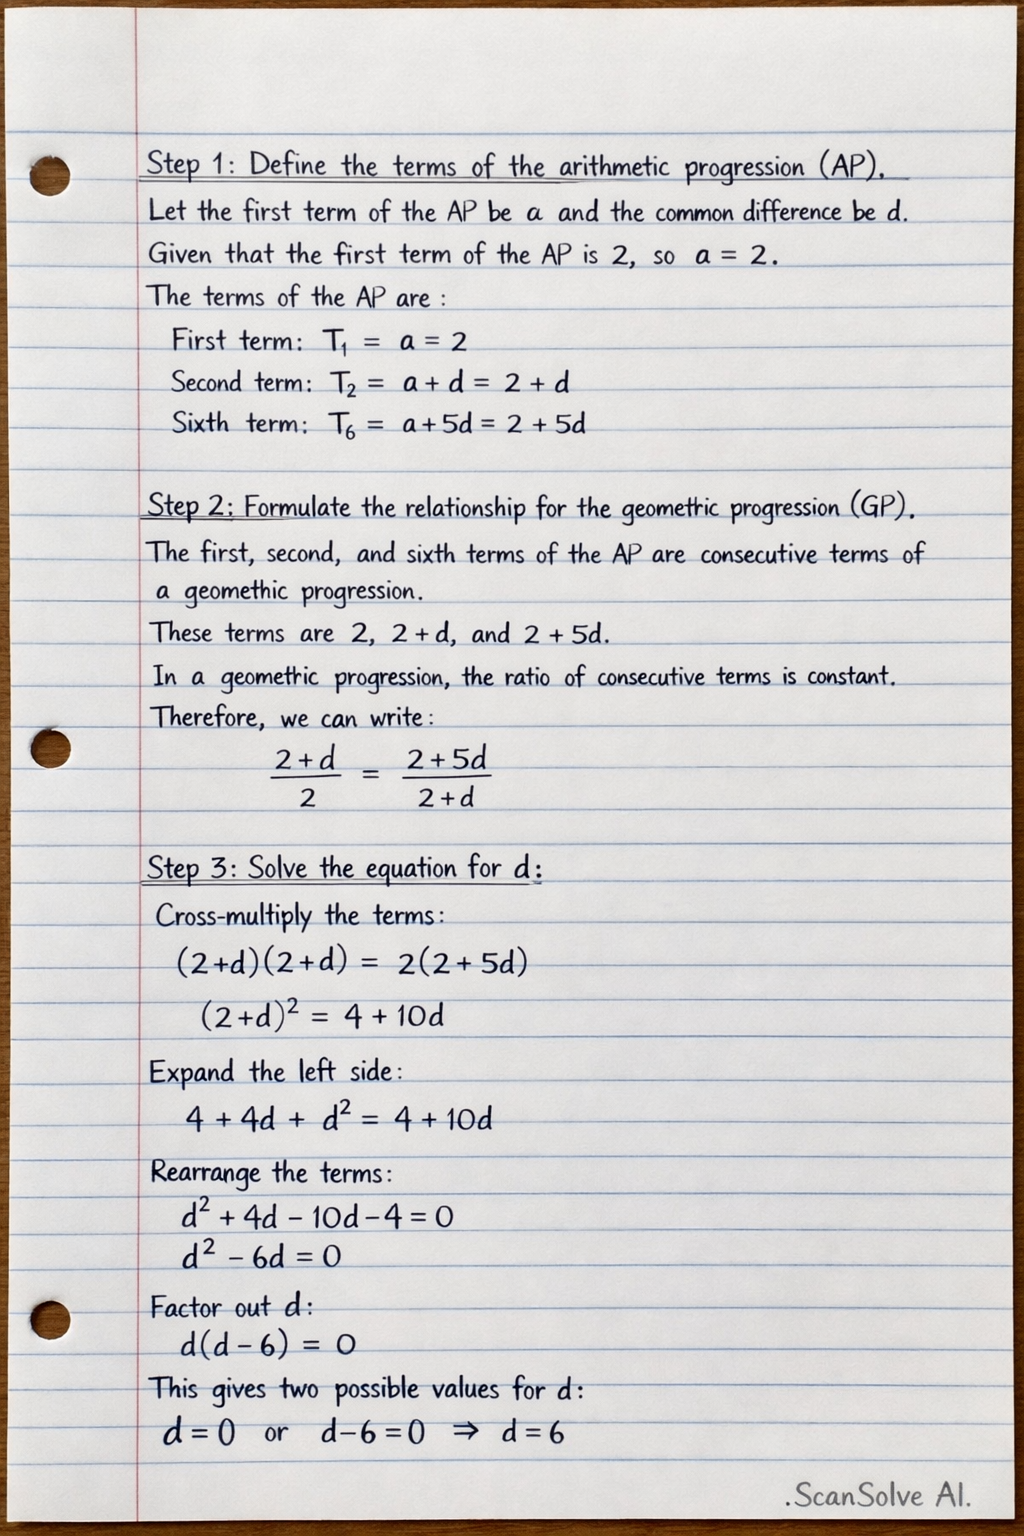 Step 1: Define the terms of the arithmetic progression (AP).
Let the first term of the AP be a and the common difference be d.
Given that the first term of the AP is 2, so a = 2.
The terms of the AP are :
First term: T₁ = a = 2
Second term: T₂ = a + d = 2 + d
Sixth term: T₆ = a + 5d = 2 + 5d
Step 2: Formulate the relationship for the geometric progression (GP).
The first, second, and sixth terms of the AP are consecutive terms of
a geomethic progression.
These terms are 2, 2 + d, and 2 + 5d.
In a geometric progression, the ratio of consecutive terms is constant.
Therefore, we can write:
(2 + d)/2 = (2 + 5d)/(2 + d)
Step 3: Solve the equation for d:
Cross-multiply the terms:
(2+d)(2+d) = 2(2 + 5d)
(2+d)² = 4 + 10d
Expand the left side:
4 + 4d + d² = 4 + 10d
Rearrange the terms:
d² + 4d − 10d − 4 = 0
d² − 6d = 0
Factor out d:
d(d − 6) = 0
This gives two possible values for d:
d = 0 or d−6 = 0 ⇒ d = 6
.ScanSolve AI.